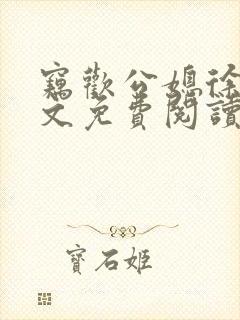 竊歡公媳徐
文免費閱讀
寶石姬